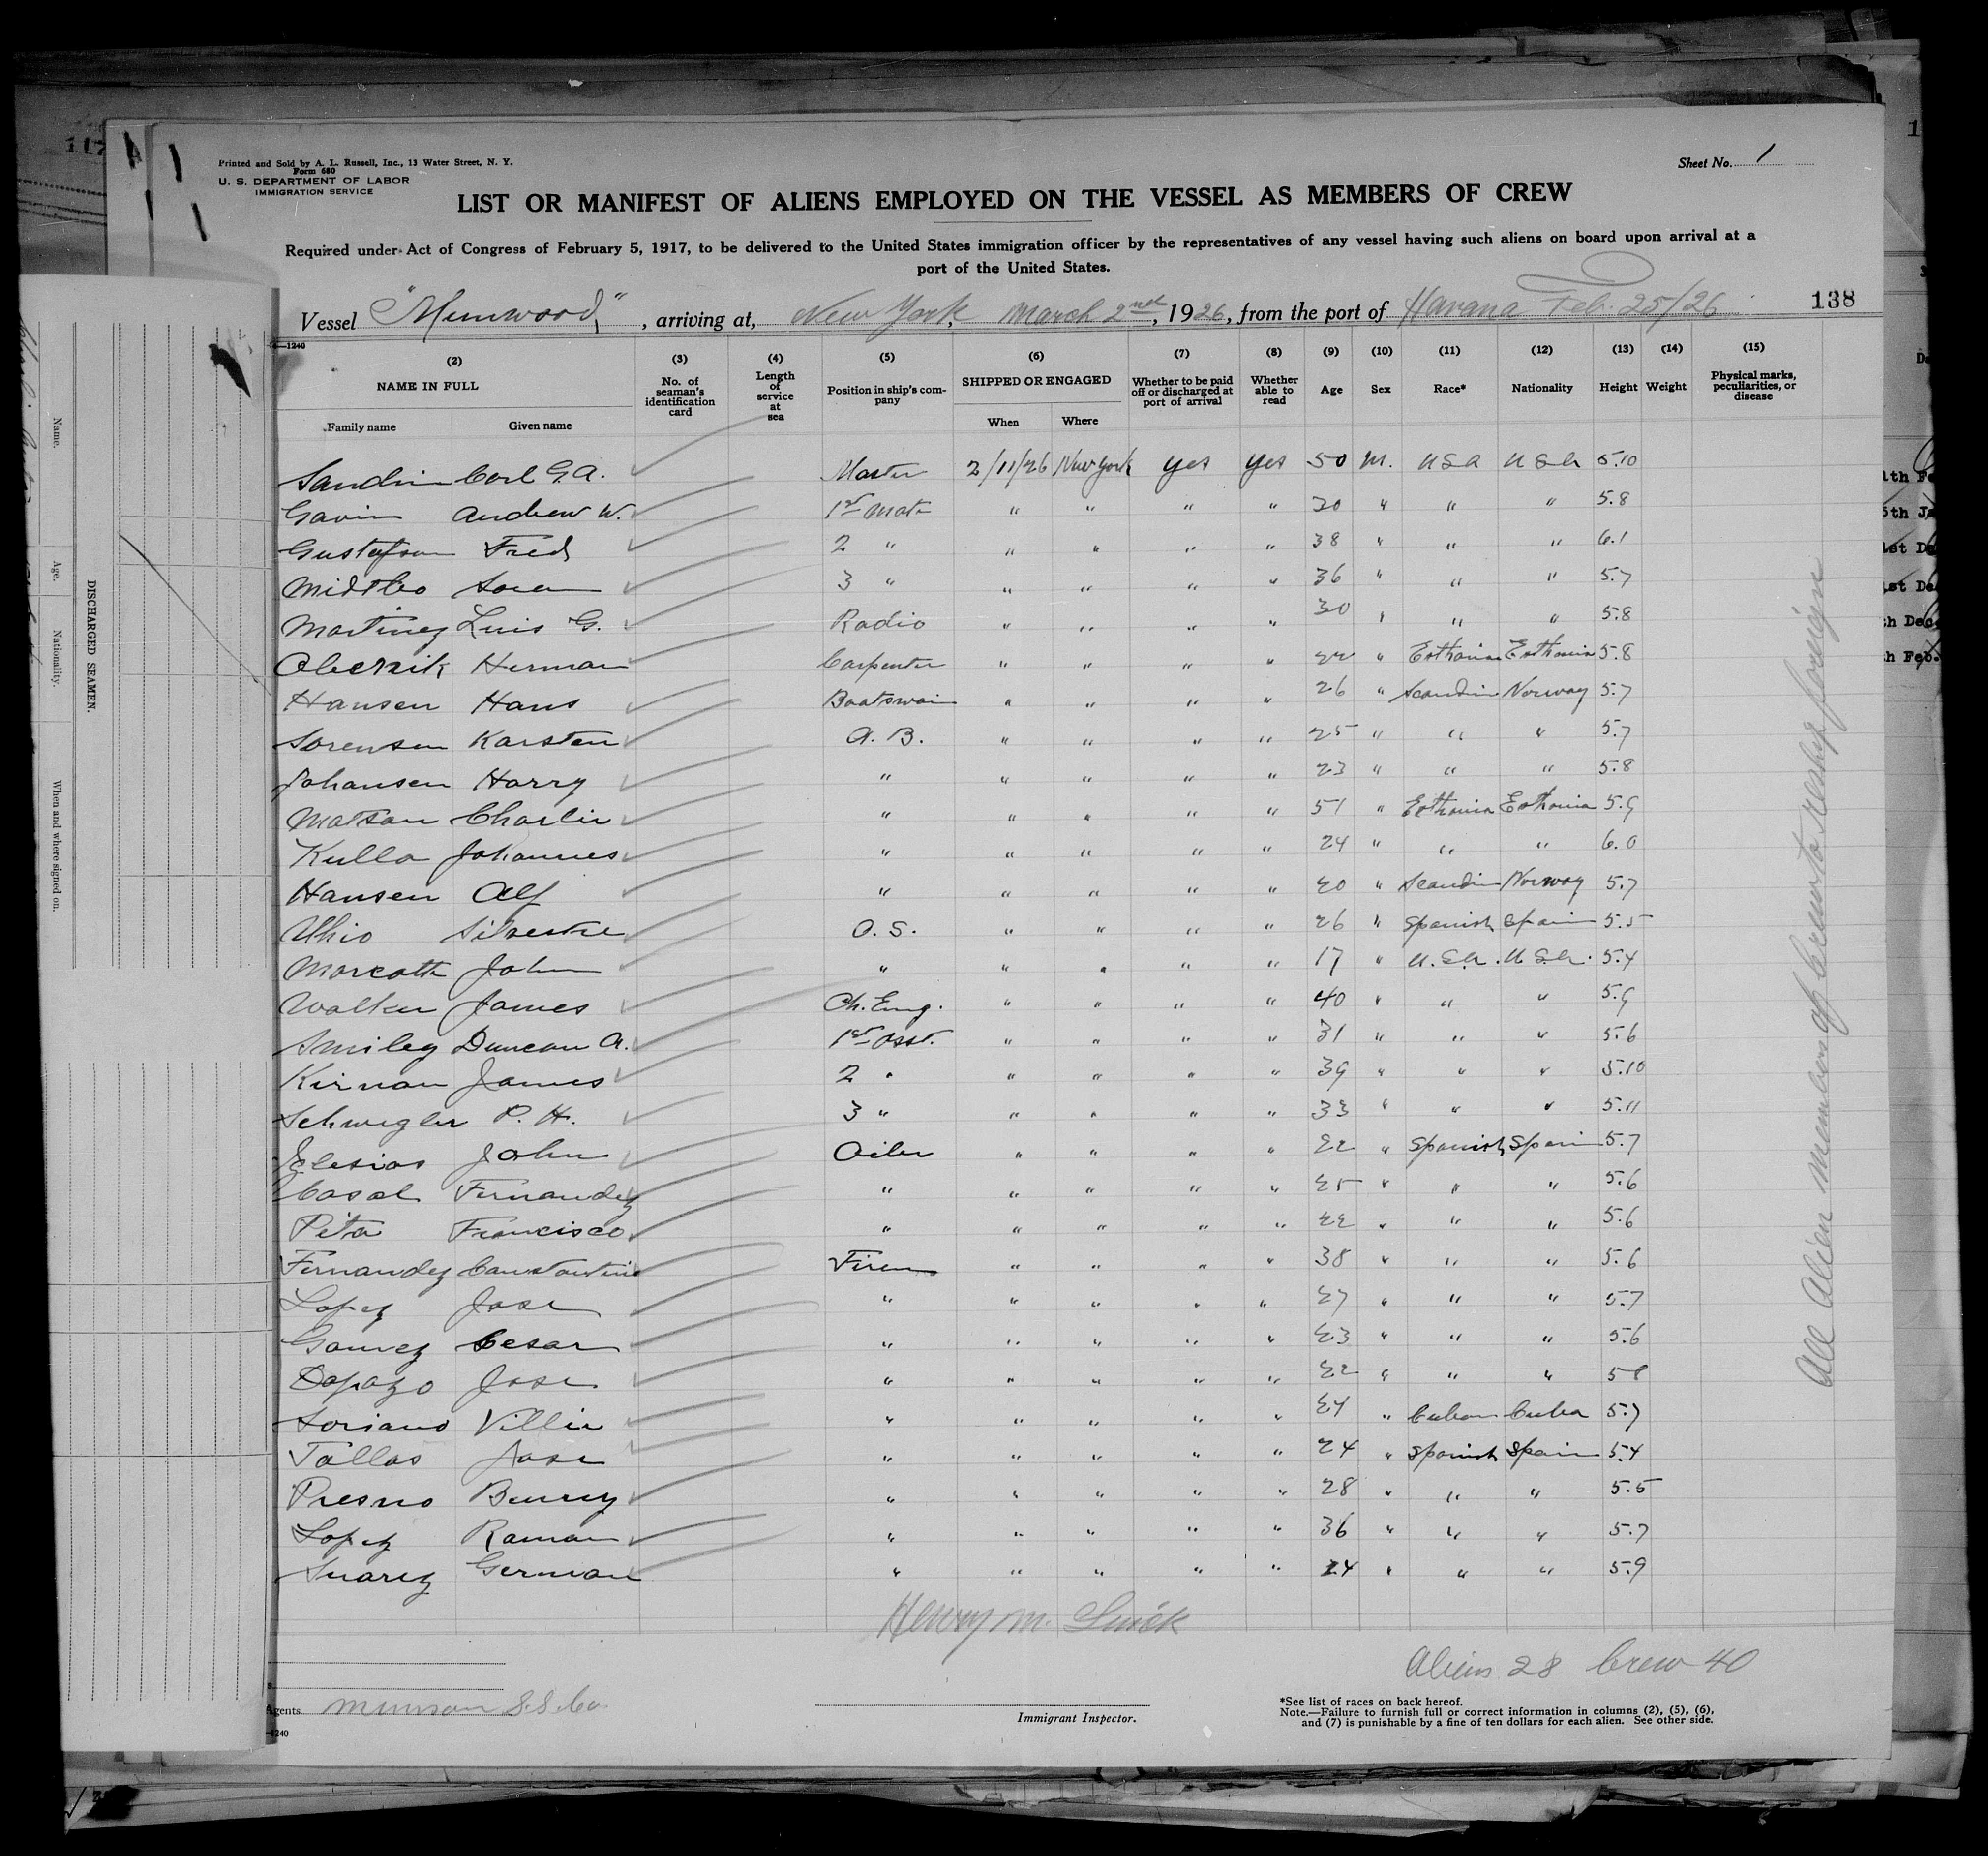 Printed and Sold by A. L. Russell, Inc., 13 Water Street, N. Y.
Form 680
U. S. DEPARTMENT OF LABOR
IMMIGRATION SERVICE
Sheet No. 1
LIST OR MANIFEST OF ALIENS EMPLOYED ON THE VESSEL AS MEMBERS OF CREW
Required under Act of Congress of February 5, 1917, to be delivered to the United States immigration officer by the representatives of any vessel having such aliens on board upon arrival at a
port of the United States.
Vessel "Munwood", arriving at, New York, March 2nd, 1926, from the port of Havana Feb. 25/26
138
(2) NAME IN FULL Family name Given name
(3) No. of seaman's identification card
(4) Length of service at sea
(5) Position in ship's company
(6) SHIPPED OR ENGAGED When Where
(7) Whether to be paid off or discharged at port of arrival
(8) Whether able to read
(9) Age
(10) Sex
(11) Race*
(12) Nationality
(13) Height
(14) Weight
(15) Physical marks, peculiarities, or disease
Sandrin Carl G.A. Master 2/11/26 New York yes yes 50 M. USA USA 5.10
Gavin Andrew W. 1st Mate " " " " 30 " " " 5.8
Gustafson Fred 2 " " " " " 38 " " " 6.1
Midtbo Soren 3 " " " " " 36 " " " 5.7
Martinez Luis G. Radio " " " " 30 " " " 5.8
Herman Carpenter " " " " 22 " Esthonia Esthonia 5.8
Hansen Hans Boatswain " " " " 26 " Scandin Norway 5.7
Sorensen Karsten A.B. " " " " 25 " " " 5.7
Johansen Harry " " " " " 23 " " " 5.8
Matson Charlie " " " " " 51 " Esthonia Esthonia 5.9
Kulla Johannes " " " " " 24 " " " 6.0
Hansen Alf " " " " " 20 " Scandin Norway 5.7
Silvestre O.S. " " " " 26 " Spanish Spain 5.5
John " " " " " 17 " U.S.A. U.S.A. 5.4
Walker James Ch. Eng. " " " " 40 " " " 5.9
Smiley Duncan A. 1st Asst. " " " " 31 " " " 5.6
Kirnan James 2 " " " " " 39 " " " 5.10
Schwegler P. H. 3 " " " " " 33 " " " 5.11
Iglesias John Oiler " " " " 22 " Spanish Spain 5.7
Casal Fernandez " " " " " 25 " " " 5.6
Pita Francisco " " " " " 22 " " " 5.6
Fernandez Constantine Firem " " " " 38 " " " 5.6
Lopez Jose " " " " " 27 " " " 5.7
Gomez Cesar " " " " " 23 " " " 5.6
Dopazo Jose " " " " " 22 " " " 5 8
Soriano Villie " " " " " 24 " Cuban Cuba 5.7
Tallas Jose " " " " " 24 " Spanish Spain 5.4
Presno Benny " " " " " 28 " " " 5.5
Lopez Raman " " " " " 36 " " " 5.7
Suarez German " " " " " 24 " " " 5.9
Henry M.
All Alien members of Crew to reship foreign
Aliens 28 Crew 40
Agents Munson S.S. Co.
Immigrant Inspector.
*See list of races on back hereof.
Note.—Failure to furnish full or correct information in columns (2), (5), (6),
and (7) is punishable by a fine of ten dollars for each alien. See other side.
DISCHARGED SEAMEN.
Name.
Age.
Nationality.
When and where signed on.